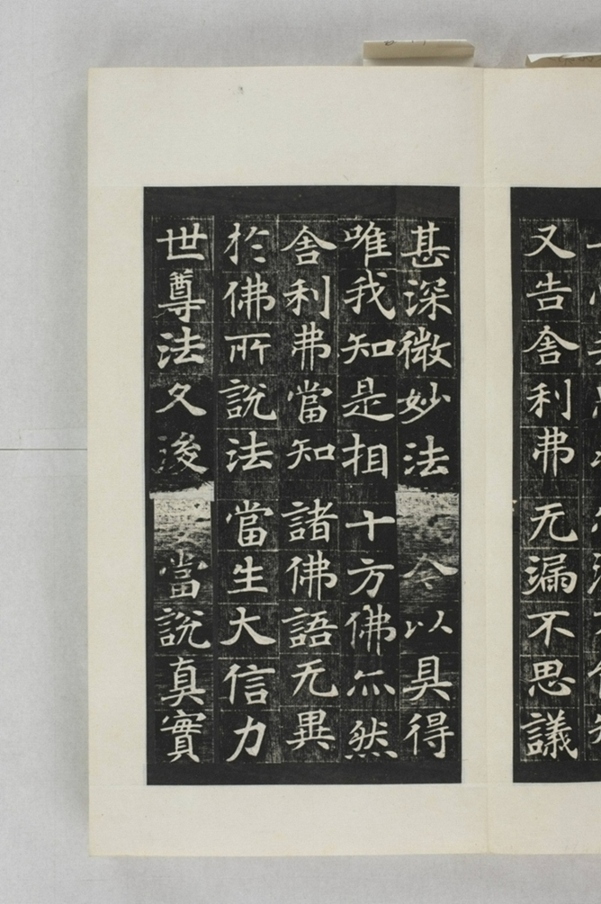 又告舍利弗 无漏不思議
甚深微妙法 今以具得
唯我知是相 十方佛亦然
舍利弗當知 諸佛語无異
於佛所說法 當生大信力
世尊法久後 當說真實